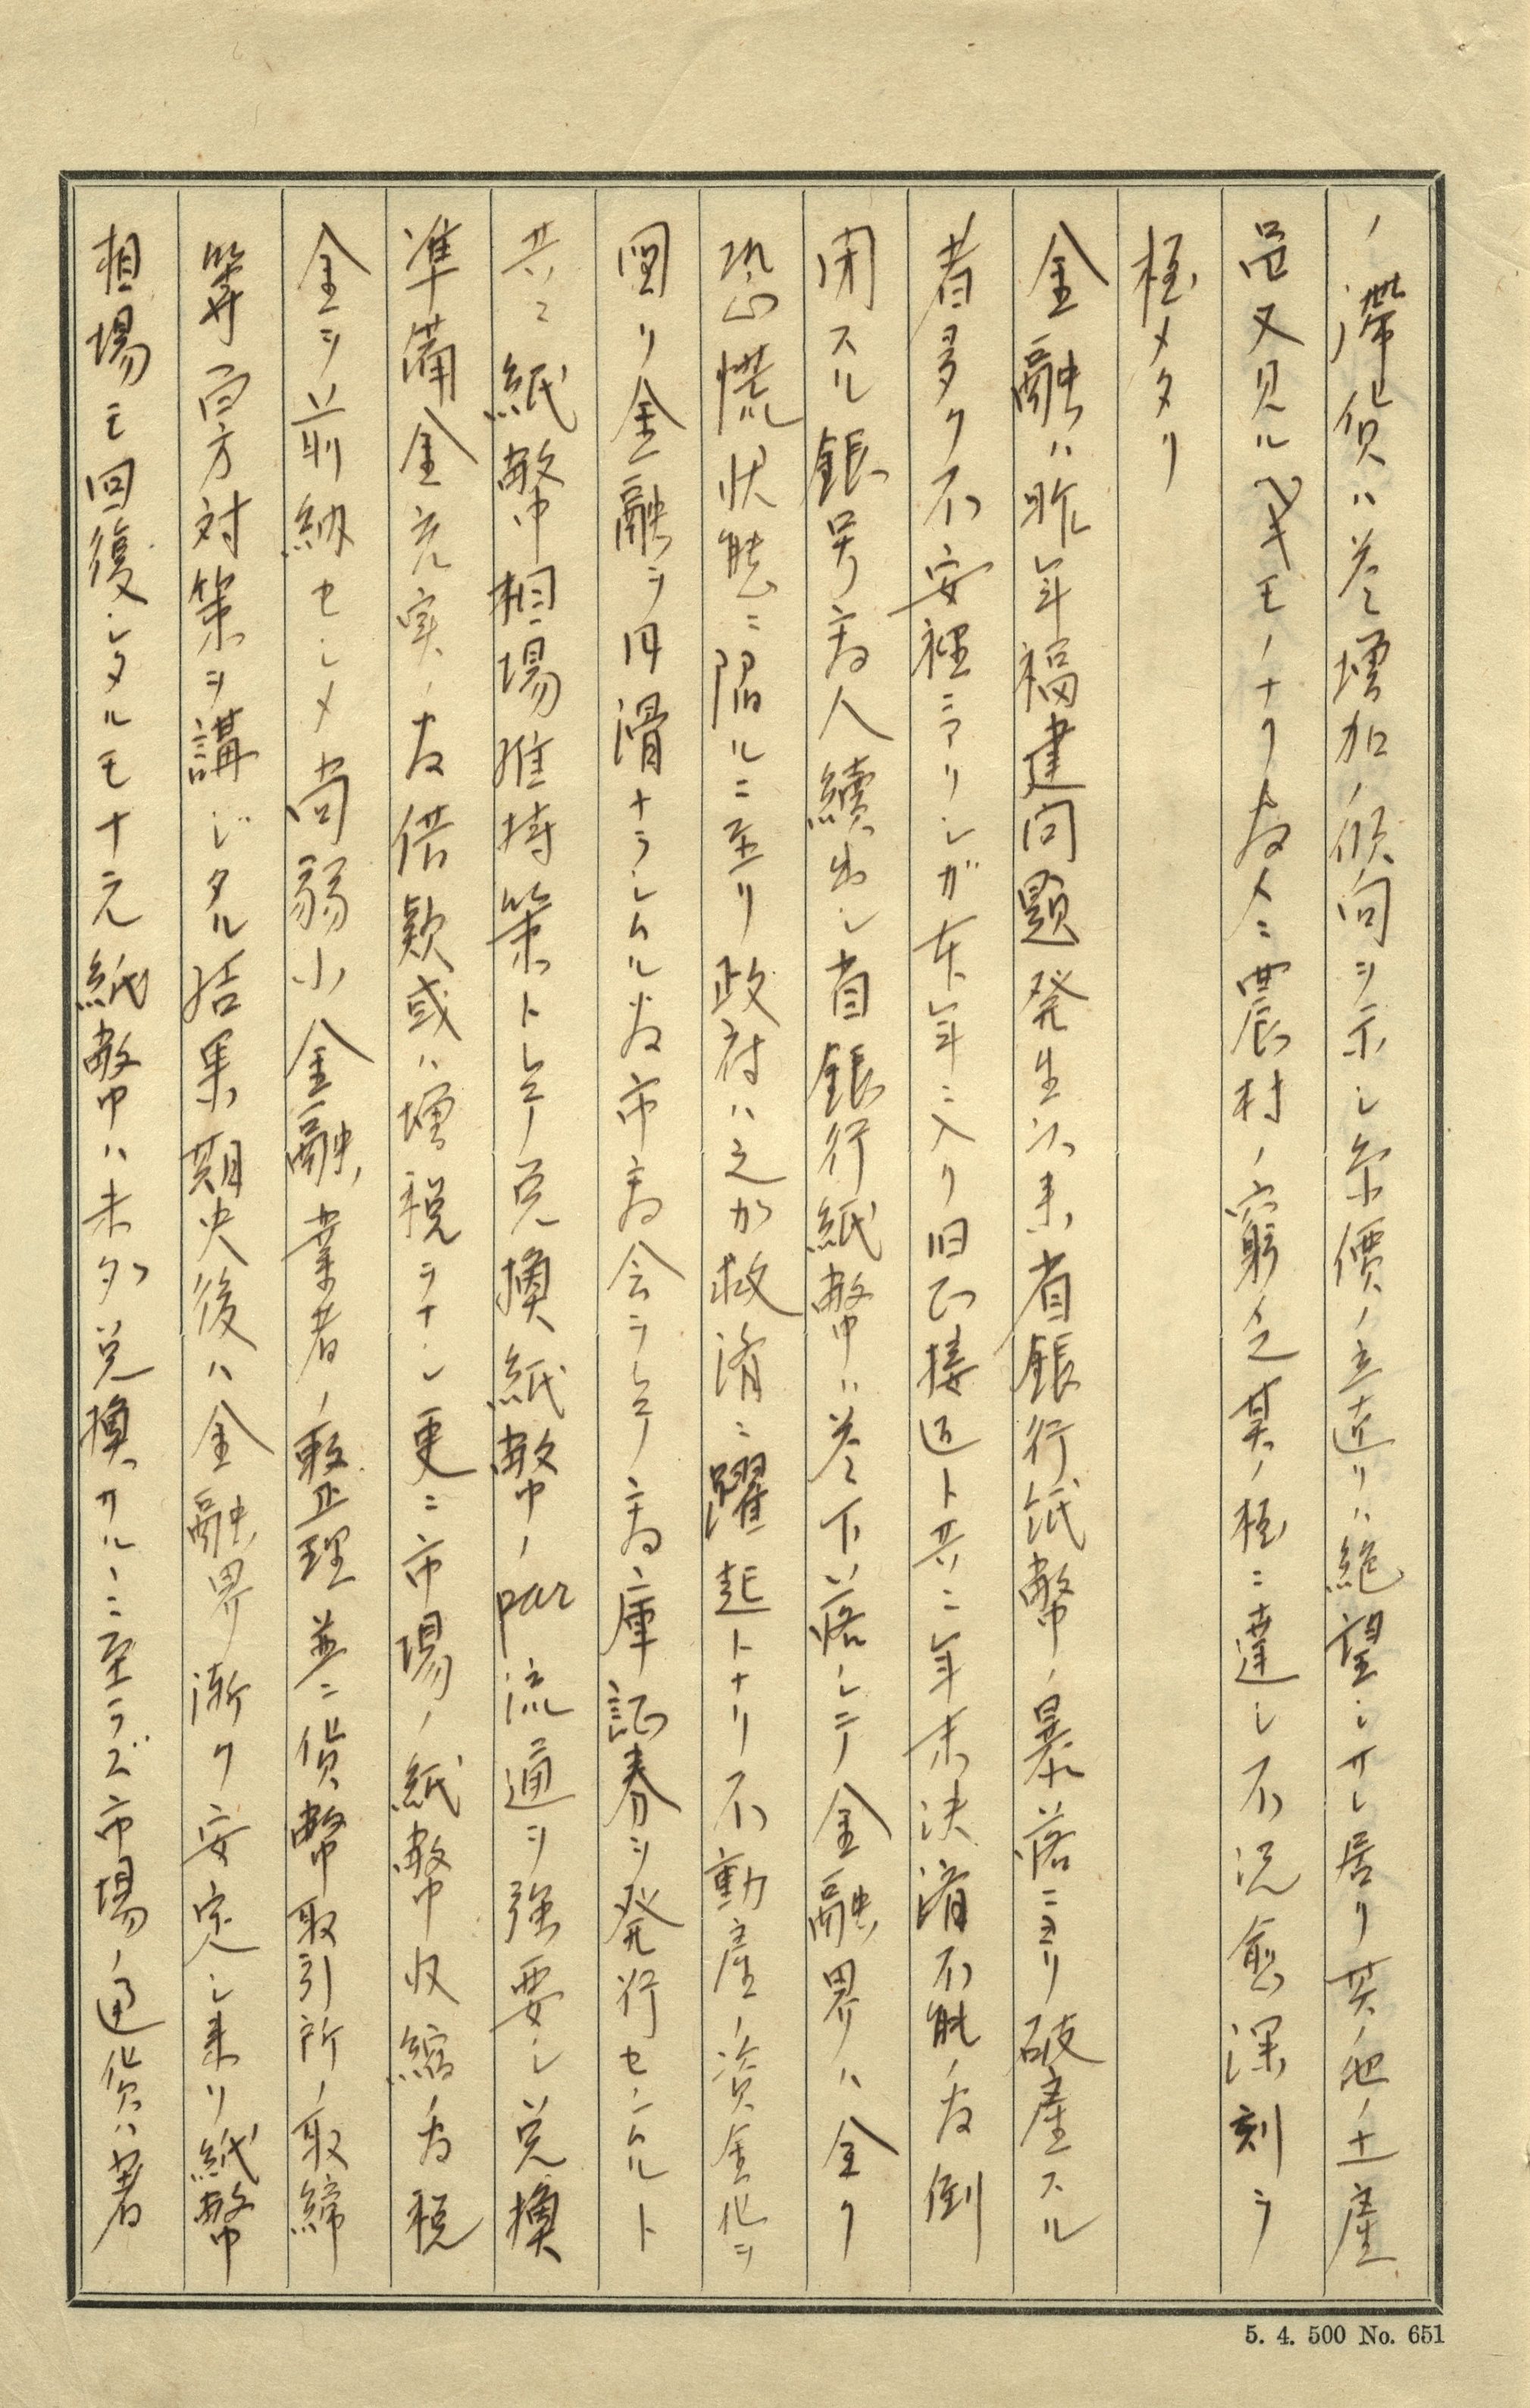 ノ滞貨ハ益々増加ノ傾向ヲ示シ糸價ノ立直リハ絶望シサレ居リ其ノ他ノ土産
品又見ルヘキモノナク為メニ農村ノ窮乏其ノ極ニ達シ不況愈深刻ヲ
極メタリ
金融ハ昨年福建問題発生以来省銀行紙幣ノ暴落ニヨリ破産スル
者多ク不安裡ニアリシガ本年ニ入リ旧正接近ト共ニ年末決済不能ノ為倒
閉スル銀号商人續出シ省銀行紙幣ハ益々下落シテ金融界ハ全ク
恐慌状態ニ陥ルニ至リ政府ハ之カ救済ニ躍起トナリ不動産ノ資金化ヲ
図リ金融ヲ円滑ナラシムル為市商会ヲシテ商庫証券ヲ発行セシムルト
共ニ紙幣相場維持策トシテ兌換紙幣ノpar流通ヲ強要シ兌換
準備金充実ノ為借款或ハ増税ヲナシ更ニ市場ノ紙幣収縮ノ為税
金ヲ前納セシメ尚弱小金融業者ノ整理並ニ貨幣取引所ノ取締
等百方対策ヲ講ジタル結果期央後ハ金融界漸ク安定シ来リ紙幣
相場モ回復シタルモ十元紙幣ハ未タ兌換サルヽニ至ラズ市場ノ通貨ハ著
5. 4. 500 No. 651